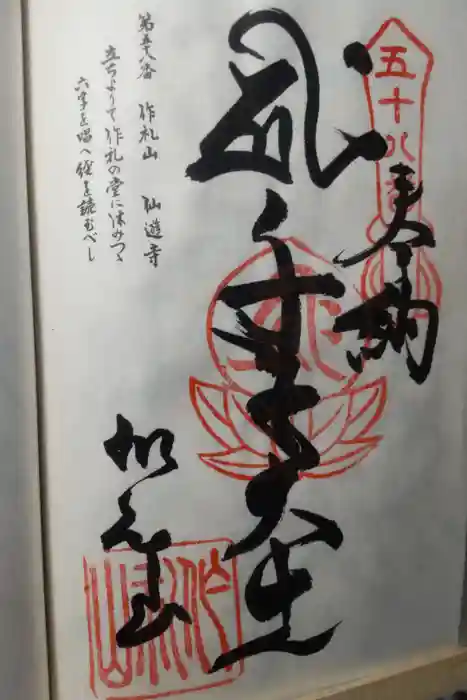 五十八番
奉納
千手大士
作礼山
第五十八番 作礼山 仙遊寺
立ちよりて作礼の堂に休みつゝ
六字を唱へ経を読むべし
作礼山